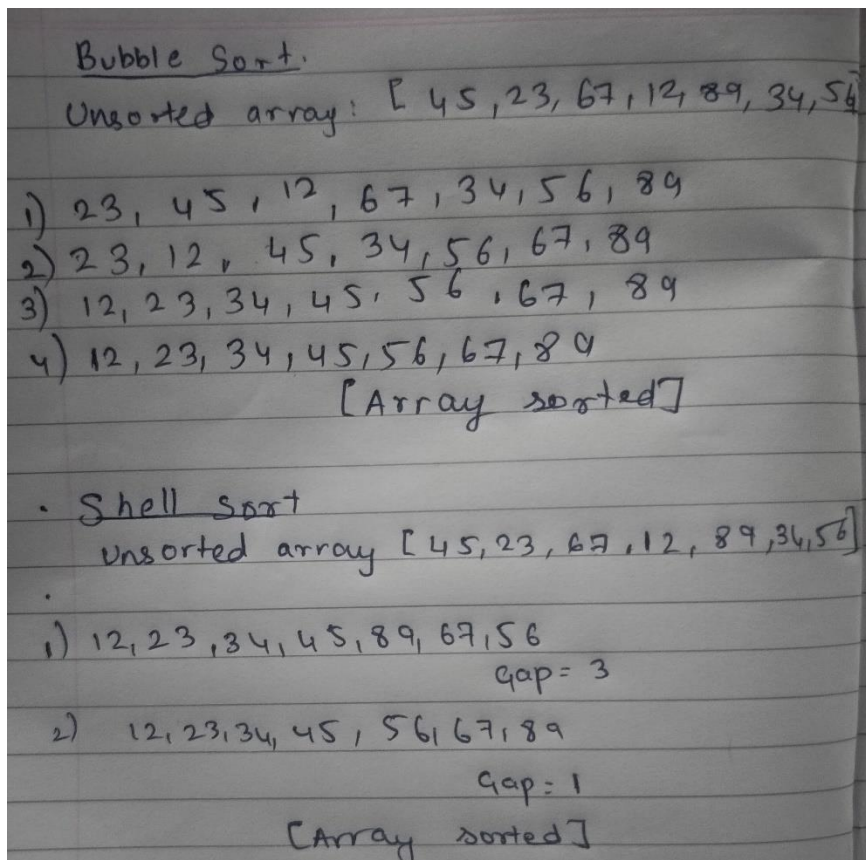 Bubble Sort.
Unsorted array: [ 45, 23, 67, 12, 89, 34, 56]
1) 23, 45, 12, 67, 34, 56, 89
2) 23, 12, 45, 34, 56, 67, 89
3) 12, 23, 34, 45, 56, 67, 89
4) 12, 23, 34, 45, 56, 67, 89
[Array sorted]
. Shell Sort
Unsorted array [45, 23, 67, 12, 89, 34, 56]
.
1) 12, 23, 34, 45, 89, 67, 56
Gap = 3
2) 12, 23, 34, 45, 56, 67, 89
Gap = 1
[Array sorted]